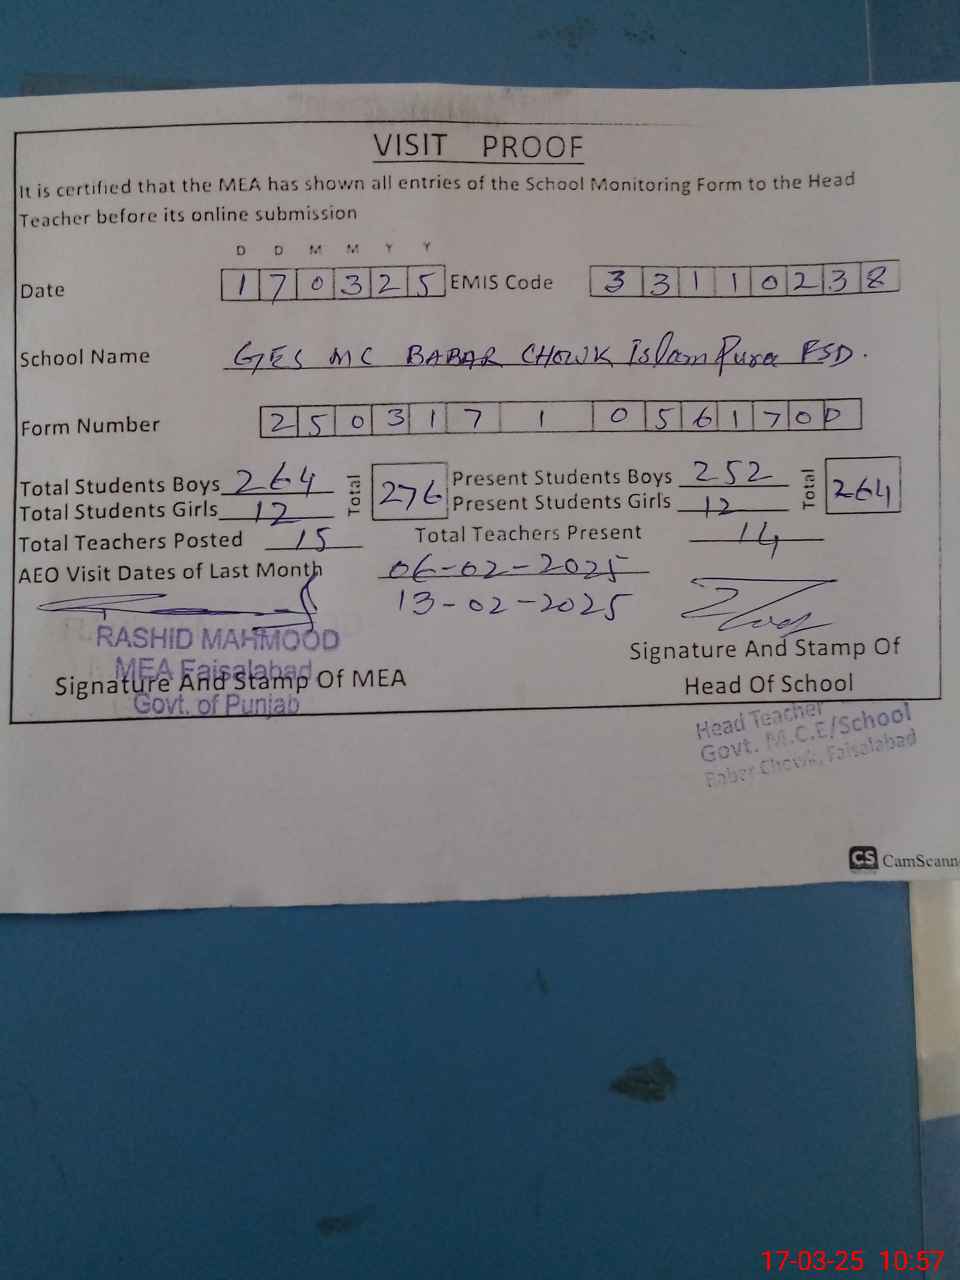 VISIT PROOF
It is certified that the MEA has shown all entries of the School Monitoring Form to the Head
Teacher before its online submission
D D M M Y Y
Date 1 7 0 3 2 5 EMIS Code 3 3 1 1 0 2 3 8
School Name GES MC BABAR CHOWK IslamPura FSD.
Form Number 2 5 0 3 1 7 1 0 5 6 1 7 0 0
Total Students Boys 264 Total 276 Present Students Boys 252 Total 264
Total Students Girls 12 Present Students Girls 12
Total Teachers Posted 15 Total Teachers Present 14
AEO Visit Dates of Last Month 06-02-2025
13-02-2025
RASHID MAHMOOD
MEA Faisalabad
Govt. of Punjab
Signature And Stamp Of MEA
Signature And Stamp Of
Head Of School
Head Teacher
Govt. M.C.E/School
Babar Chowk, Faisalabad
CS CamScann
17-03-25 10:57